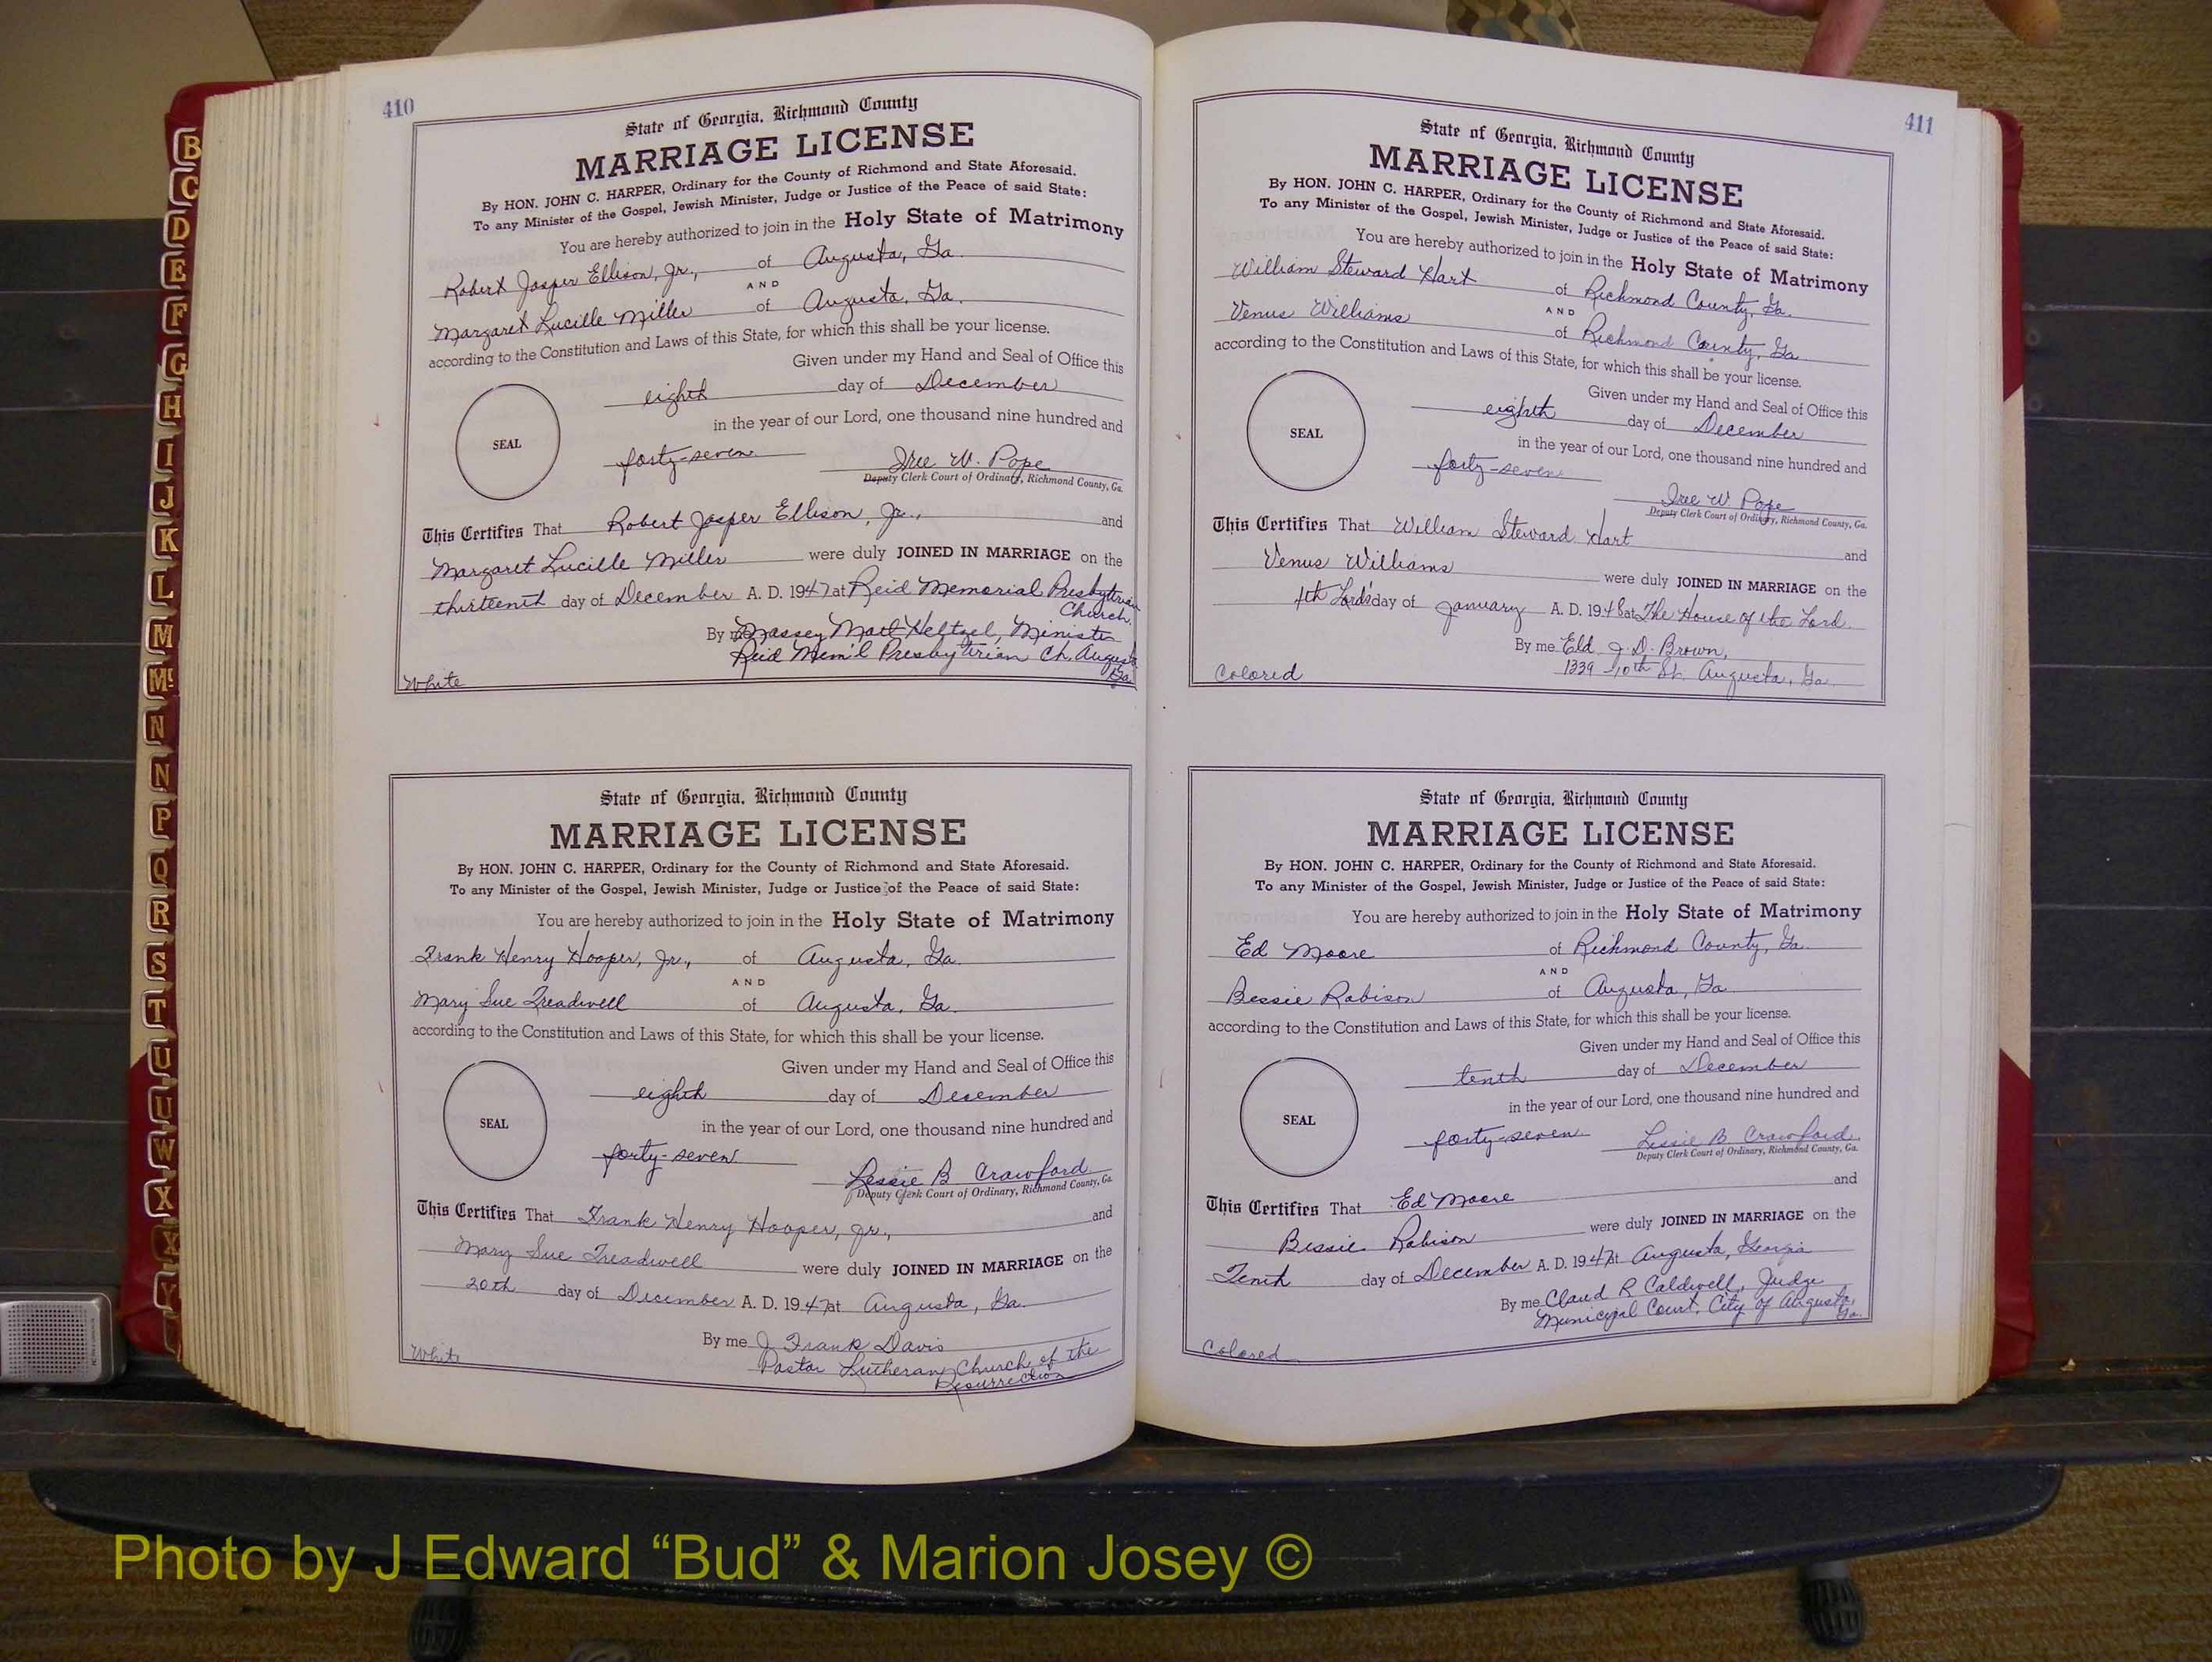 410
State of Georgia, Richmond County
MARRIAGE LICENSE
By HON. JOHN C. HARPER, Ordinary for the County of Richmond and State Aforesaid.
To any Minister of the Gospel, Jewish Minister, Judge or Justice of the Peace of said State:
You are hereby authorized to join in the Holy State of Matrimony
Robert Jasper Ellison, Jr., of Augusta, Ga.
AND
Margaret Lucille Miller of Augusta, Ga.
according to the Constitution and Laws of this State, for which this shall be your license.
Given under my Hand and Seal of Office this
eighth day of December
in the year of our Lord, one thousand nine hundred and
SEAL
forty-seven W. Pope
Deputy Clerk Court of Ordinary, Richmond County, Ga.
This Certifies That Robert Jasper Ellison, Jr., and
Margaret Lucille Miller were duly JOINED IN MARRIAGE on the
thirteenth day of December A. D. 1947 at Reid Memorial Presbyterian
Church.
By me Massey Mott Heltzel, Minister
Reid Mem'l Presbyterian Ch. Augusta
Ga.
White
State of Georgia, Richmond County
MARRIAGE LICENSE
By HON. JOHN C. HARPER, Ordinary for the County of Richmond and State Aforesaid.
To any Minister of the Gospel, Jewish Minister, Judge or Justice of the Peace of said State:
You are hereby authorized to join in the Holy State of Matrimony
Frank Henry Hooper, Jr., of Augusta, Ga.
AND
Mary Sue Treadwell of Augusta, Ga.
according to the Constitution and Laws of this State, for which this shall be your license.
Given under my Hand and Seal of Office this
eighth day of December
SEAL
in the year of our Lord, one thousand nine hundred and
forty-seven
Lessie B Crawford
Deputy Clerk Court of Ordinary, Richmond County, Ga.
This Certifies That Frank Henry Hooper, Jr., and
Mary Sue Treadwell were duly JOINED IN MARRIAGE on the
20th day of December A. D. 1947 at Augusta, Ga.
By me J Frank Davis
Pastor Lutheran Church of the
Resurrection
White
411
State of Georgia, Richmond County
MARRIAGE LICENSE
By HON. JOHN C. HARPER, Ordinary for the County of Richmond and State Aforesaid.
To any Minister of the Gospel, Jewish Minister, Judge or Justice of the Peace of said State:
You are hereby authorized to join in the Holy State of Matrimony
William Steward Hart of Richmond County, Ga.
AND
Venus Williams of Richmond County, Ga.
according to the Constitution and Laws of this State, for which this shall be your license.
Given under my Hand and Seal of Office this
eighth day of December
SEAL
in the year of our Lord, one thousand nine hundred and
forty-seven
W. Pope
Deputy Clerk Court of Ordinary, Richmond County, Ga.
This Certifies That William Steward Hart and
Venus Williams were duly JOINED IN MARRIAGE on the
4th Lord's day of January A. D. 1948 at The House of the Lord.
By me Eld. J. D. Brown,
1339 - 10th St. Augusta, Ga.
Colored
State of Georgia, Richmond County
MARRIAGE LICENSE
By HON. JOHN C. HARPER, Ordinary for the County of Richmond and State Aforesaid.
To any Minister of the Gospel, Jewish Minister, Judge or Justice of the Peace of said State:
You are hereby authorized to join in the Holy State of Matrimony
Ed Moore of Richmond County, Ga.
AND
Bessie Robison of Augusta, Ga.
according to the Constitution and Laws of this State, for which this shall be your license.
Given under my Hand and Seal of Office this
tenth day of December
in the year of our Lord, one thousand nine hundred and
SEAL
forty-seven Lessie B Crawford
Deputy Clerk Court of Ordinary, Richmond County, Ga.
This Certifies That Ed Moore and
Bessie Robison were duly JOINED IN MARRIAGE on the
Tenth day of December A. D. 1947 at Augusta, Georgia
By me Claud R Caldwell, Judge
Municipal Court, City of Augusta,
Ga.
Colored
B
C
D
E
F
G
H
I
J
K
L
M
Mc
N
N
P
Q
R
S
T
U
U
W
X
X
Y
Photo by J Edward “Bud” & Marion Josey ©